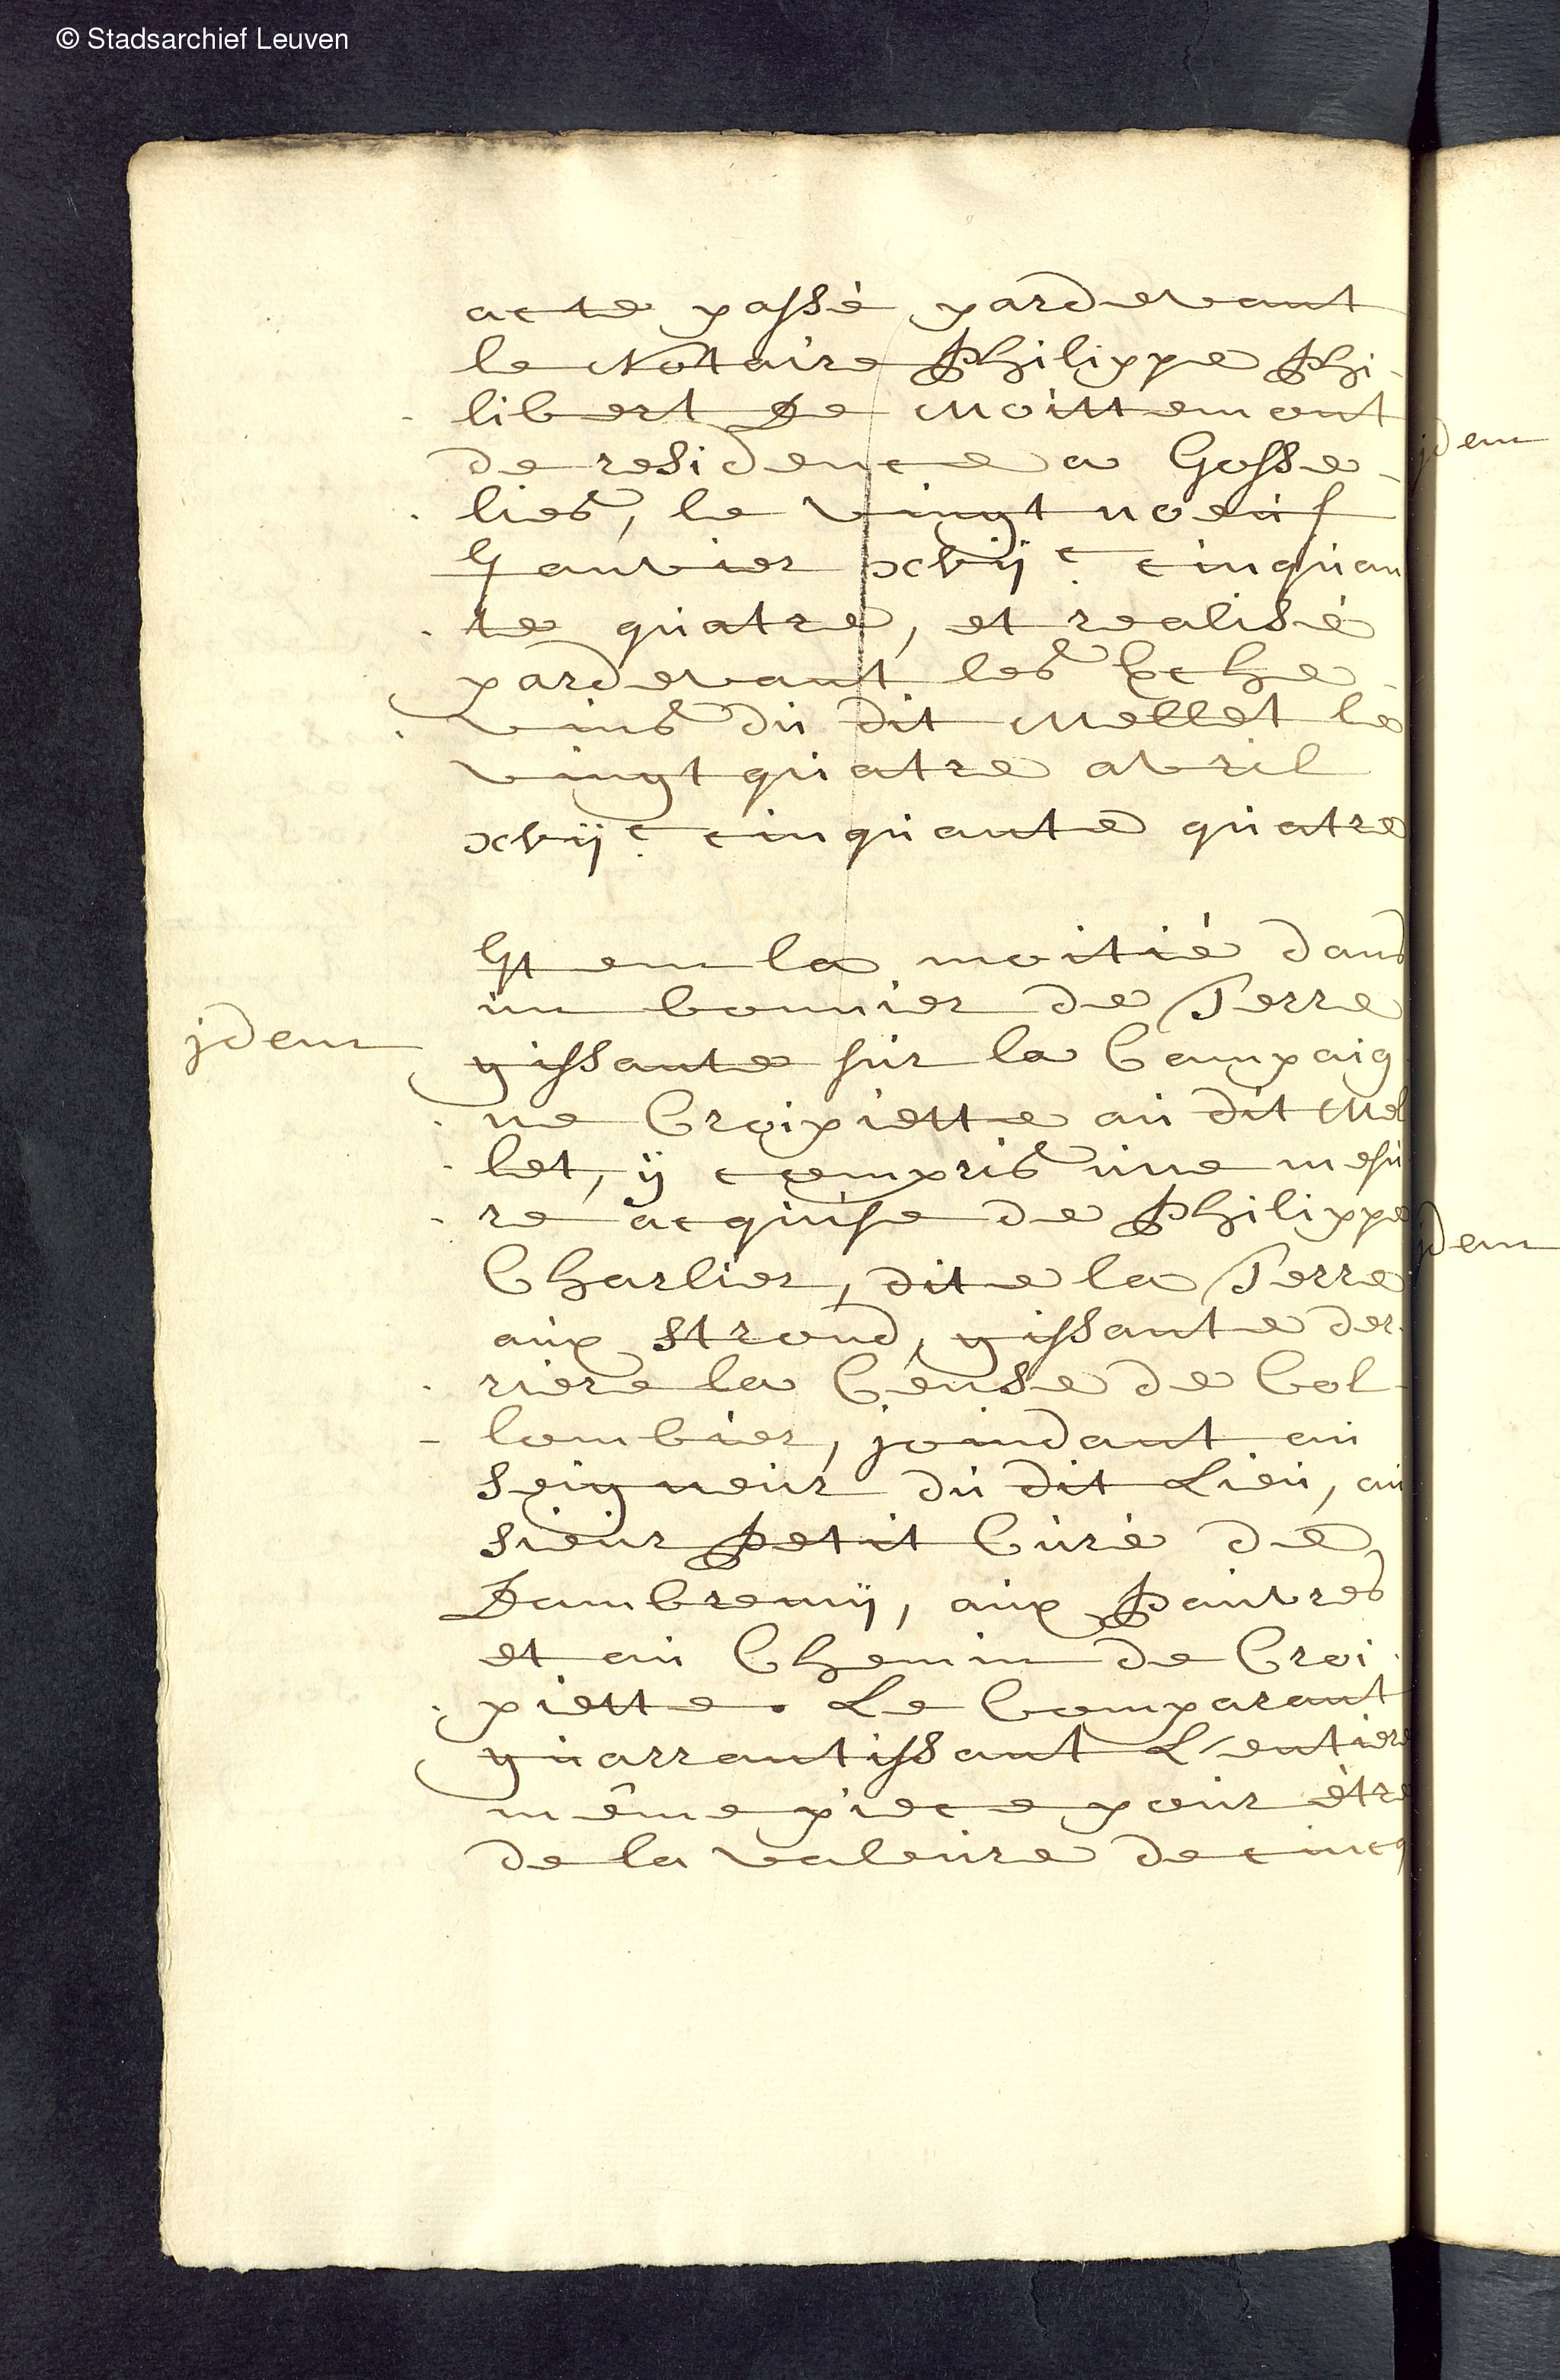 © Stadsarchief Leuven
acte passé pardevant
le Notaire Philippe Phi-
libert De Moittemont
de residence a Gosse-
lies, le vingt noeuf
Janvier xvijc. cinquan
te quatre, et realisé
pardevant les Eche-
vins du dit Mellet le
vingt quatre avril
xvijc. cinquante quatre
Jtem la moitié dans
un bonnier de Terre
jdem
gissante sur la Campaig
ne Croipiette au dit Mel
let, ÿ compris une mesu
re acquise de Philippe
Charlier, dite la Terre
aux strond, gissante der-
riere la Cense de Col-
lombier, joindant au
seigneur du dit Lieu, au
sieur Petit Curé de
Dambremÿ, aux Pauvres
et au Chemin de Croi-
piette. Le Comparant
guarrantissant L'entiere
même piece pour être
de la valeure de cincq
jdem
jdem